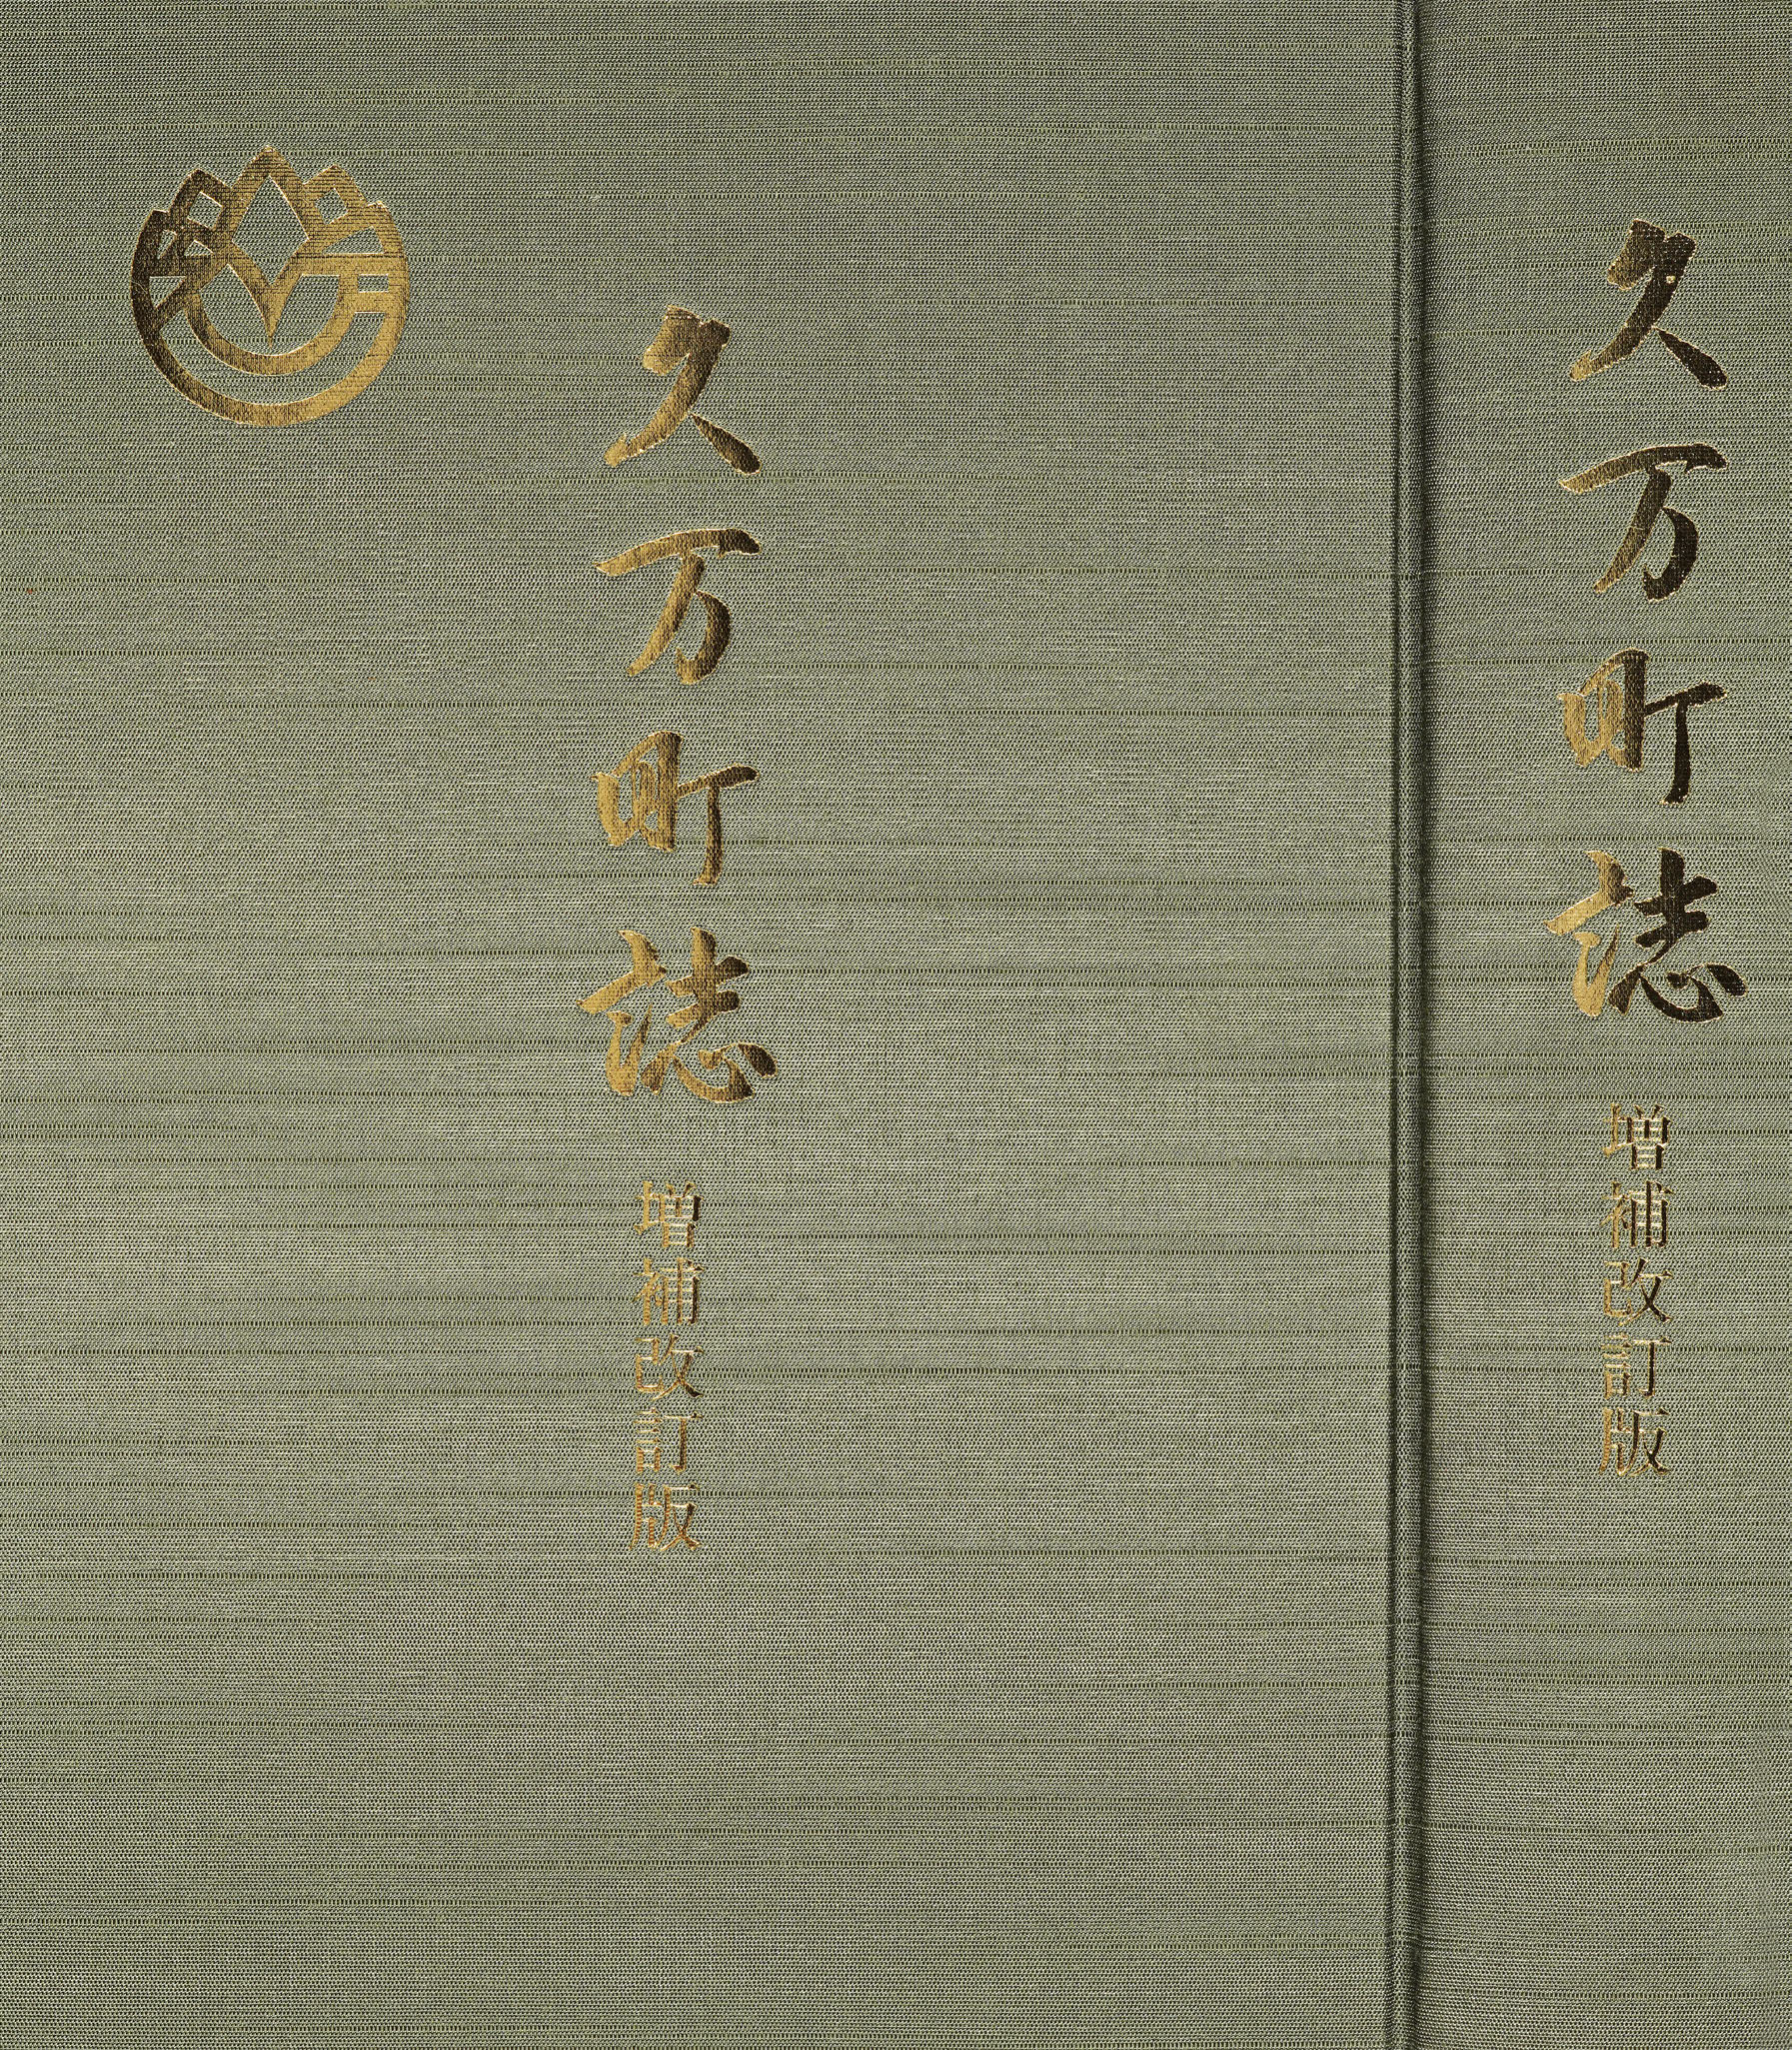 久万町誌
増補改訂版
久万町誌
増補改訂版